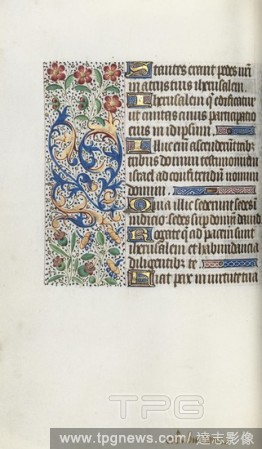 Stantes erant pedes nr̄i
in atriis tuis iherusalem.
Iherusalem q̄ edificatur
ut civitas cuius participatio
eius in idipsum.
Illuc enim ascenderūt tribꝰ
tribus domini testimonium
israel ad confitendū nomini
domini.
Quia illic sederunt sedes in
iudicio sedes sup̄ domū david
Rogate q̄ ad pacem sunt
iherusalem et habundancia
diligentibꝰ te.
Fiat pax in virtute tua
TPG
www.tpgnews.com / 達志影像